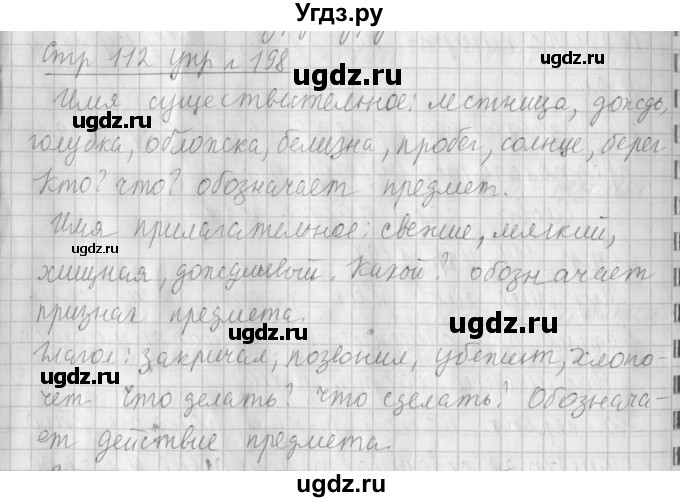 Угдз.ру
Стр 112 упр 198
Имя существительное: лестница, дождь,
голубка, обложка, белизна, пробег, солнце, берег
Кто? что? обозначает предмет.
Имя прилагательное: свежие, мягкий,
хищная, дождливый. Какой? обозначает
признак предмета.
Глагол: закричал, позвонил, убежит, хлопо-
чет Что делать? что сделать? Обознача-
ет действие предмета.
ugdz.ru
ugdz.ru
ugdz.ru
ugdz.ru
ugdz.ru
ugdz.ru
ugdz.ru
ugdz.ru
ugdz.ru
ugdz.ru
ugdz.ru
ugdz.ru